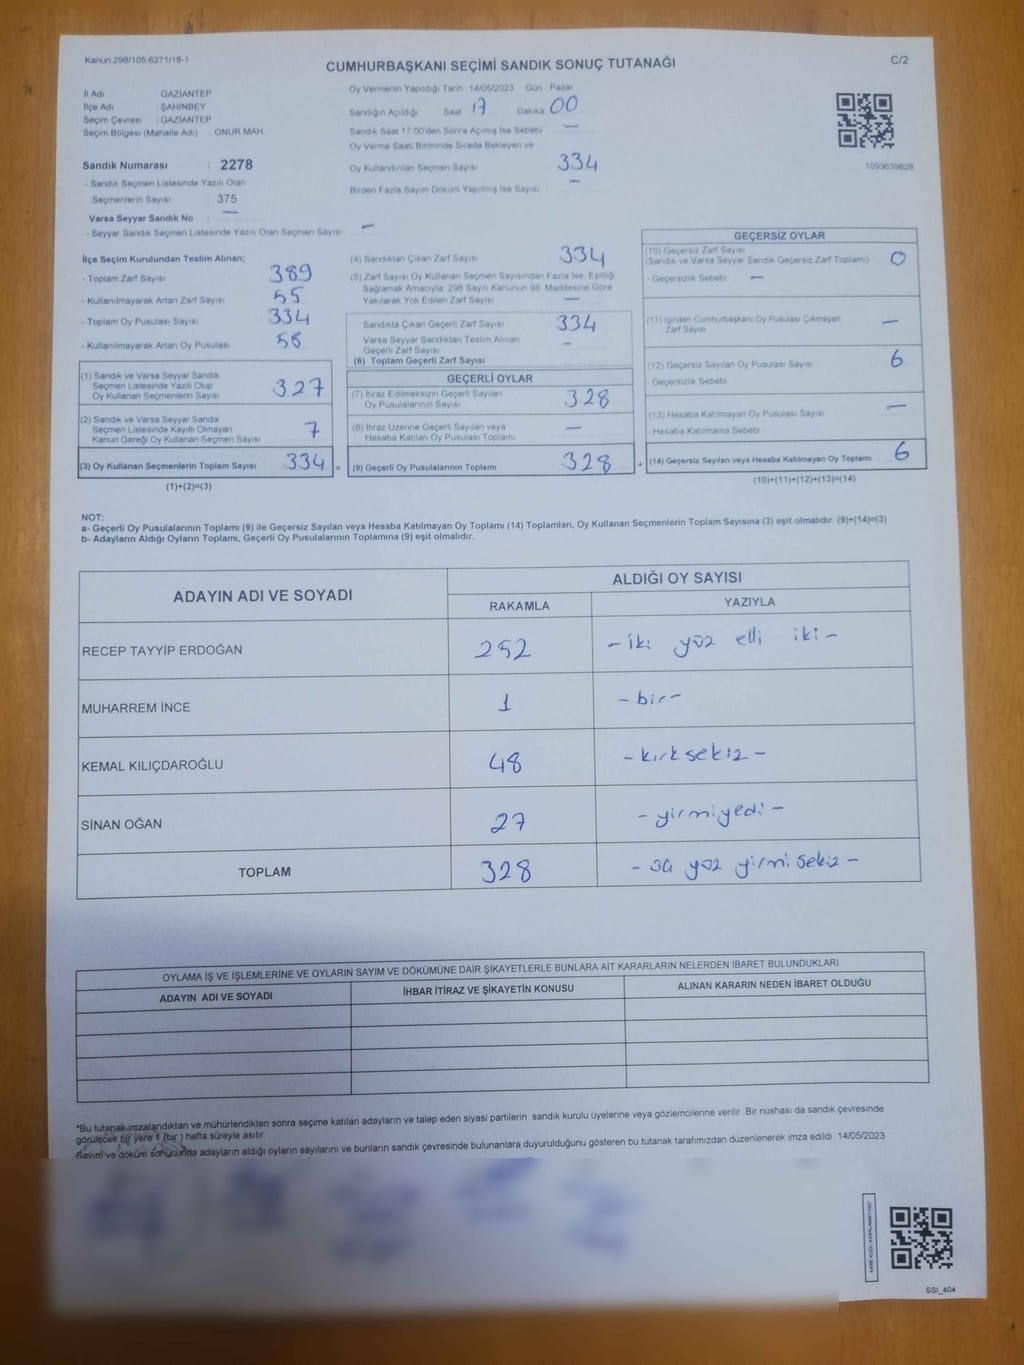 Kanun:298/105.6271/18-1
CUMHURBAŞKANI SEÇİMİ SANDIK SONUÇ TUTANAĞI
C/2
İl Adı GAZİANTEP
İlçe Adı ŞAHİNBEY
Seçim Çevresi : GAZİANTEP
Seçim Bölgesi (Mahalle Adı) ONUR MAH.
Sandık Numarası : 2278
- Sandık Seçmen Listesinde Yazılı Olan
Seçmenlerin Sayısı 375
Varsa Seyyar Sandık No —
- Seyyar Sandık Seçmen Listesinde Yazılı Olan Seçmen Sayısı —
Oy Vermenin Yapıldığı Tarih 14/05/2023 Gün Pazar
Sandığın Açıldığı Saat 17 Dakika 00
Sandık Saat 17:00'den Sonra Açılmış İse Sebebi —
Oy Verme Saati Bitiminde Sırada Bekleyen ve
Oy Kullandırılan Seçmen Sayısı 334
Birden Fazla Sayım Döküm Yapılmış İse Sayısı —
1093639828
İlçe Seçim Kurulundan Teslim Alınan;
- Toplam Zarf Sayısı 389
- Kullanılmayarak Artan Zarf Sayısı 55
- Toplam Oy Pusulası Sayısı 334
- Kullanılmayarak Artan Oy Pusulası
(1) Sandık ve Varsa Seyyar Sandık
Seçmen Listesinde Yazılı Olup
Oy Kullanan Seçmenlerin Sayısı 327
(2) Sandık ve Varsa Seyyar Sandık
Seçmen Listesinde Kayıtlı Olmayan
Kanun Gereği Oy Kullanan Seçmen Sayısı 7
(3) Oy Kullanan Seçmenlerin Toplam Sayısı 334 =
(1)+(2)=(3)
(4) Sandıktan Çıkan Zarf Sayısı 334
(5) Zarf Sayısı Oy Kullanan Seçmen Sayısından Fazla İse, Eşitliği
Sağlamak Amacıyla; 298 Sayılı Kanunun 98. Maddesine Göre
Yakılarak Yok Edilen Zarf Sayısı —
Sandıkta Çıkan Geçerli Zarf Sayısı 334
Varsa Seyyar Sandıktan Teslim Alınan
Geçerli Zarf Sayısı —
(6) Toplam Geçerli Zarf Sayısı
GEÇERLİ OYLAR
(7) İtiraz Edilmeksizin Geçerli Sayılan
Oy Pusulalarının Sayısı 328
(8) İtiraz Üzerine Geçerli Sayılan veya
Hesaba Katılan Oy Pusulası Toplamı —
(9) Geçerli Oy Pusulalarının Toplamı 328 +
GEÇERSİZ OYLAR
(10) Geçersiz Zarf Sayısı
(Sandık ve Varsa Seyyar Sandık Geçersiz Zarf Toplamı) 0
- Geçersizlik Sebebi —
(11) İçinden Cumhurbaşkanı Oy Pusulası Çıkmayan
Zarf Sayısı —
(12) Geçersiz Sayılan Oy Pusulası Sayısı 6
- Geçersizlik Sebebi
(13) Hesaba Katılmayan Oy Pusulası Sayısı —
- Hesaba Katılmama Sebebi
(14) Geçersiz Sayılan veya Hesaba Katılmayan Oy Toplamı 6
(10)+(11)+(12)+(13)=(14)
NOT:
a- Geçerli Oy Pusulalarının Toplamı (9) ile Geçersiz Sayılan veya Hesaba Katılmayan Oy Toplamı (14) Toplamları, Oy Kullanan Seçmenlerin Toplam Sayısına (3) eşit olmalıdır. (9)+(14)=(3)
b- Adayların Aldığı Oyların Toplamı, Geçerli Oy Pusulalarının Toplamına (9) eşit olmalıdır.
ADAYIN ADI VE SOYADI
ALDIĞI OY SAYISI
RAKAMLA YAZIYLA
RECEP TAYYİP ERDOĞAN 252 - iki yüz elli iki -
MUHARREM İNCE 1 - bir -
KEMAL KILIÇDAROĞLU 48 - kırksekiz -
SİNAN OĞAN 27 - yirmiyedi -
TOPLAM 328 - üç yüz yirmi sekiz -
OYLAMA İŞ VE İŞLEMLERİNE VE OYLARIN SAYIM VE DÖKÜMÜNE DAİR ŞİKAYETLERLE BUNLARA AİT KARARLARIN NELERDEN İBARET BULUNDUKLARI
ADAYIN ADI VE SOYADI İHBAR İTİRAZ VE ŞİKAYETİN KONUSU ALINAN KARARIN NEDEN İBARET OLDUĞU
*Bu tutanak imzalandıktan ve mühürlendikten sonra seçime katılan adayların ve talep eden siyasi partilerin sandık kurulu üyelerine veya gözlemcilerine verilir. Bir nüshası da sandık çevresinde
görülecek bir yere 1 (bir) hafta süreyle asılır.
Sayım ve döküm sonucunda adayların aldığı oyların sayılarını ve bunların sandık çevresinde bulunanlara duyurulduğunu gösteren bu tutanak tarafımızdan düzenlenerek imza edildi. 14/05/2023
KARE KODU KARALAMAYINIZ!
SSI_404